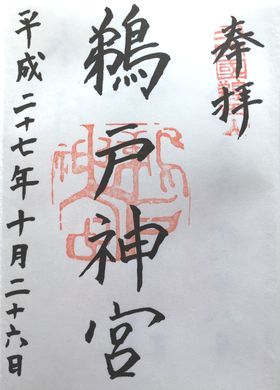 奉拝
鵜戸神宮
平成二十七年十月二十六日